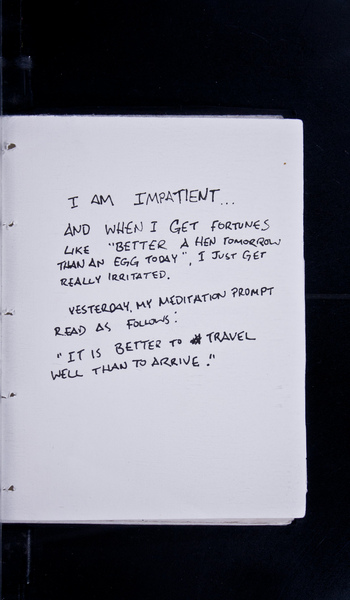 I AM IMPATIENT...
AND WHEN I GET FORTUNES
LIKE "BETTER A HEN TOMORROW
THAN AN EGG TODAY", I JUST GET
REALLY IRRITATED.
YESTERDAY, MY MEDITATION PROMPT
READ AS FOLLOWS:
"IT IS BETTER TO TRAVEL
WELL THAN TO ARRIVE."